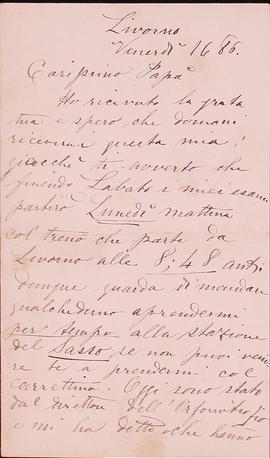 Livorno
Venerdì 16 86.
Carissimo Papà
Ho ricevuto la grata
tua e spero che domani
riceverai questa mia;
giacchè ti avverto che
finendo Sabato i miei esami
partirò Lunedì mattina
col treno che parte da
Livorno alle 8; 48 anti
dunque guarda di mandare
qualcheduno a prendermi
per tempo alla stazione
del Sasso, se non puoi veni
re te a prendermi col
carrettino. Oggi sono stato
dal direttore dell'
e mi ha detto che hanno